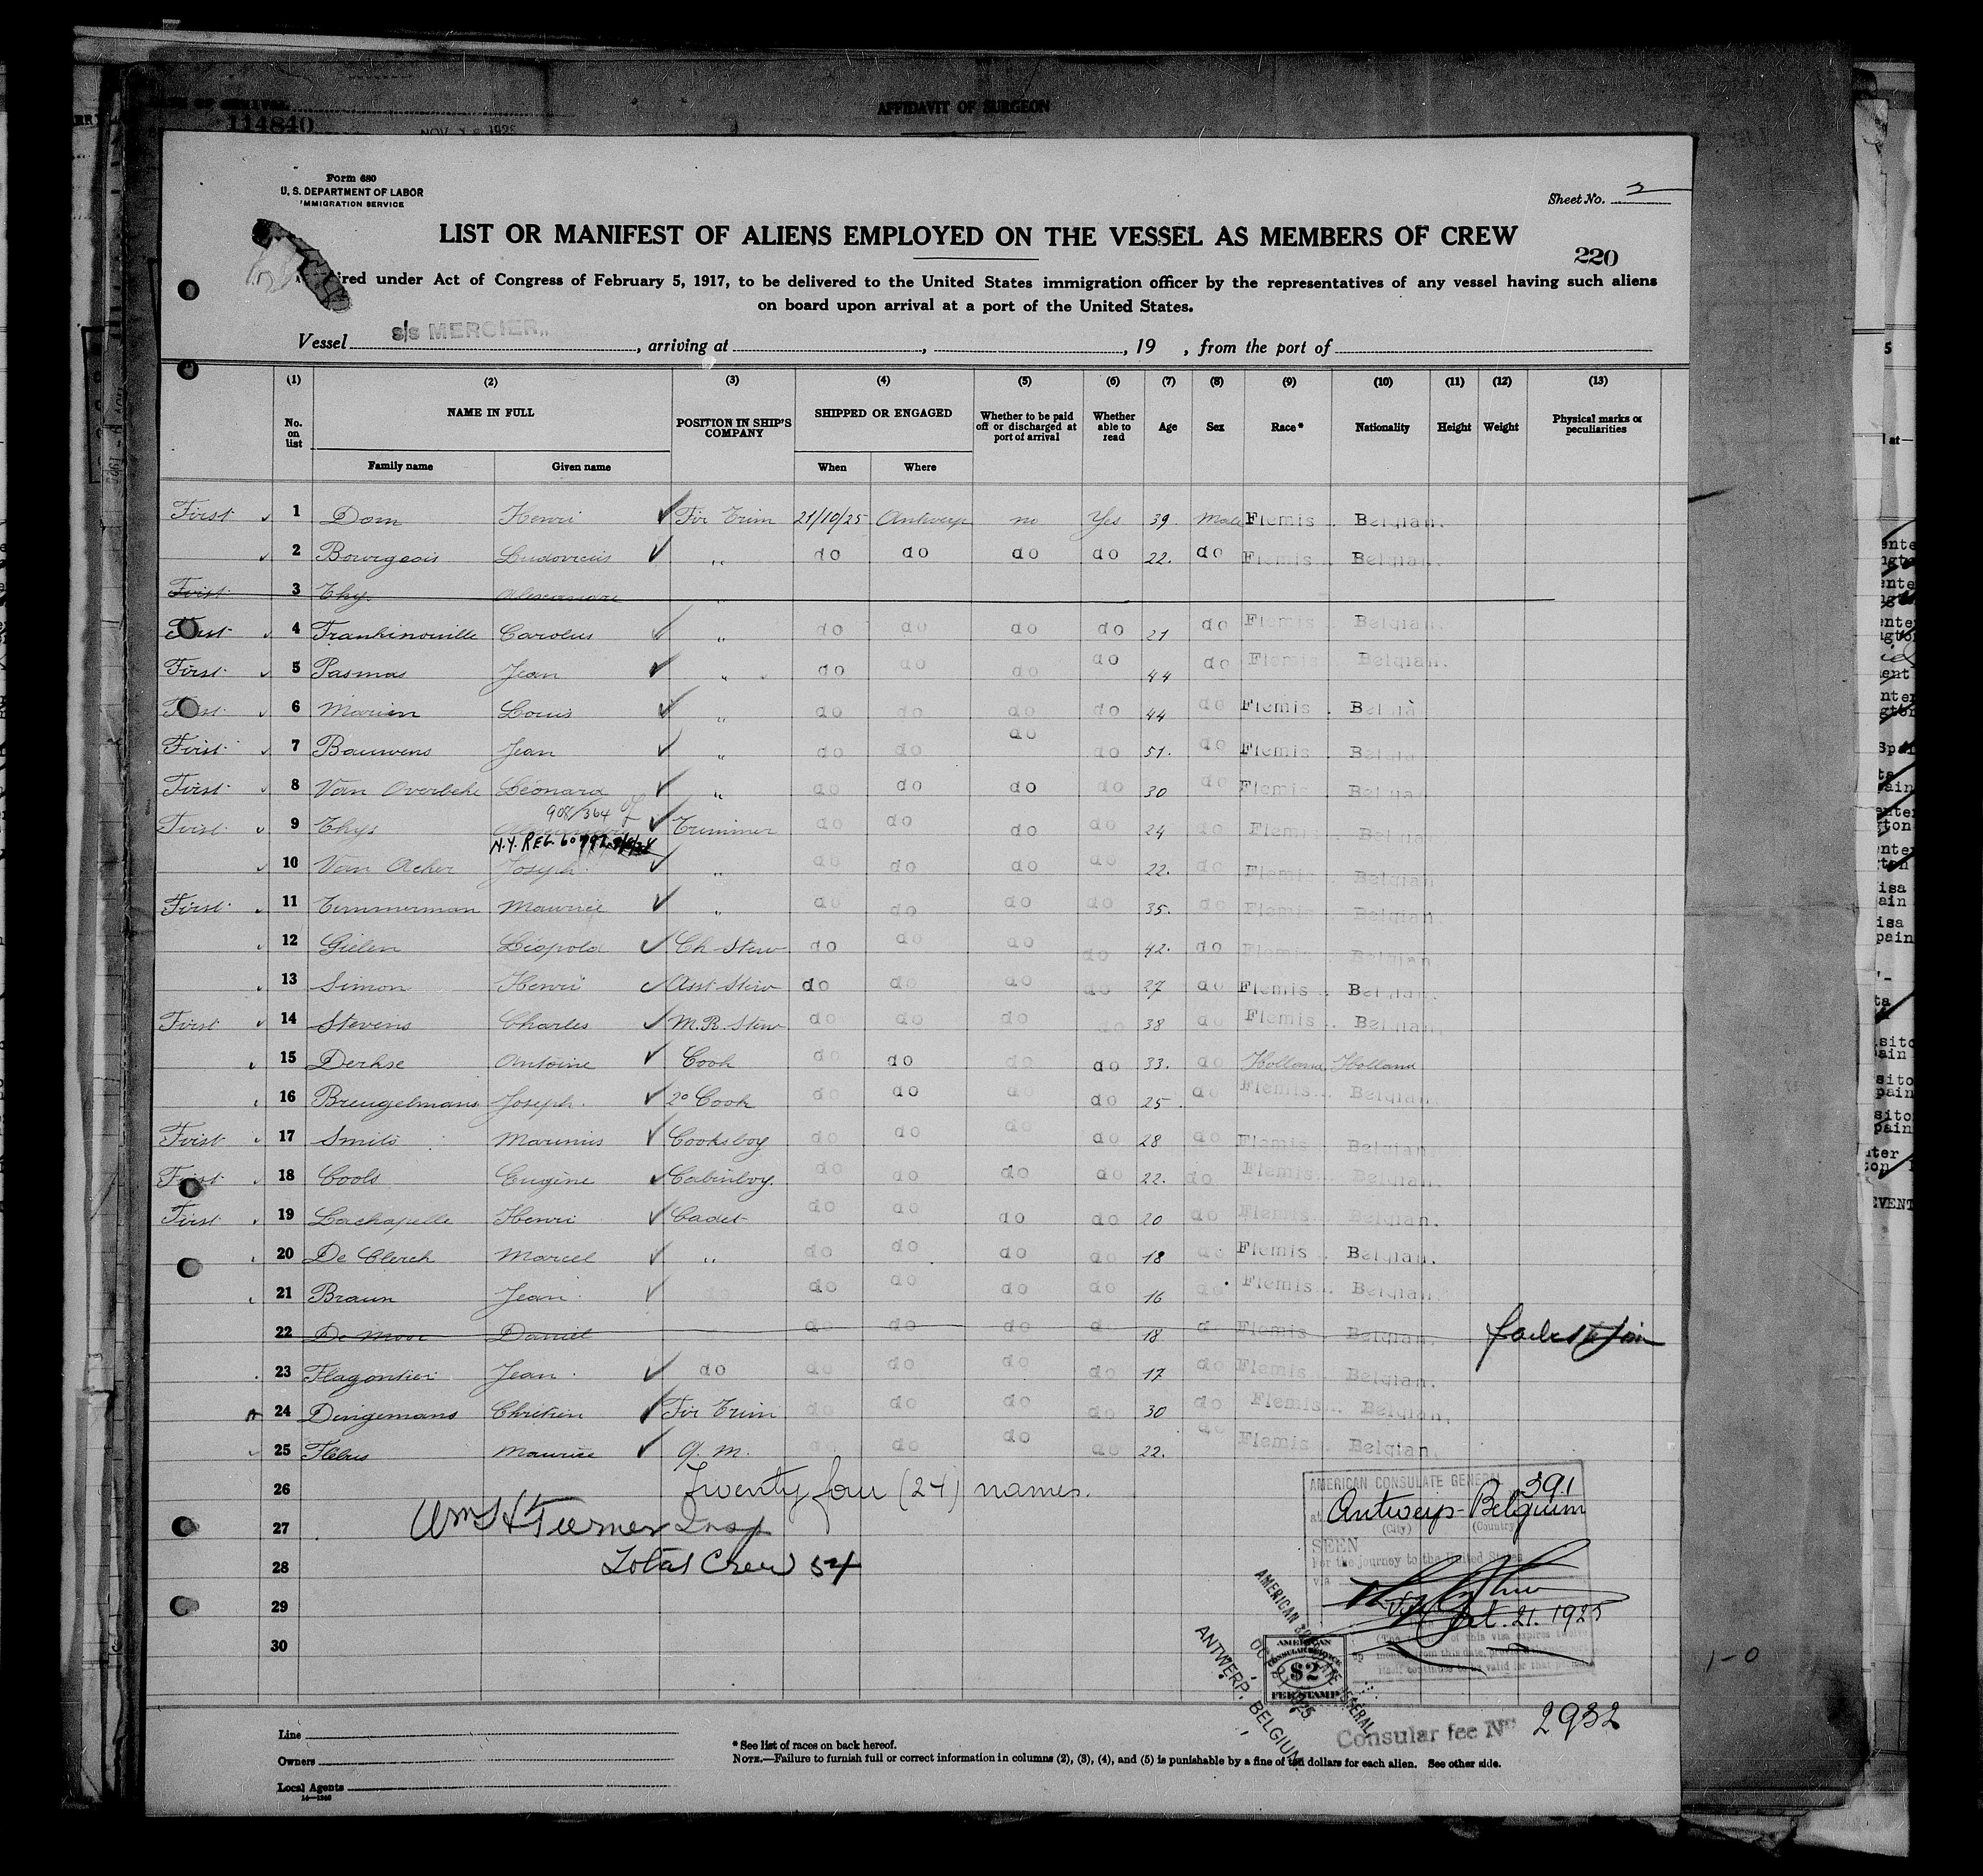 AFFIDAVIT OF SURGEON
114840
Form 680
U. S. DEPARTMENT OF LABOR
IMMIGRATION SERVICE
Sheet No. 2
LIST OR MANIFEST OF ALIENS EMPLOYED ON THE VESSEL AS MEMBERS OF CREW
220
ired under Act of Congress of February 5, 1917, to be delivered to the United States immigration officer by the representatives of any vessel having such aliens
on board upon arrival at a port of the United States.
Vessel s/s MERCIER, arriving at , , 19 , from the port of
(1) (2) (3) (4) (5) (6) (7) (8) (9) (10) (11) (12) (13)
No. on list NAME IN FULL POSITION IN SHIP'S COMPANY SHIPPED OR ENGAGED Whether to be paid off or discharged at port of arrival Whether able to read Age Sex Race* Nationality Height Weight Physical marks or peculiarities
Family name Given name When Where
First 1 Dom Henri Fir Trim 21/10/25 Antwerp no Yes 39 Male Flemis. Belgian.
2 Bourgeois Ludovicus " do do do do 22. do Flemis. Belgian.
First 3 Thy Alexandre "
First 4 Frankinouille Carolus " do do do do 21 do Flemis. Belgian
First 5 Pasmas Jean " do do do do 44 do Flemis. Belgian.
First 6 Marien Louis " do do do do 44 do Flemis. Belgia
First 7 Bauwens Jean " do do do do 51. do Flemis. Belgia
First 8 Van Overbeke Léonard " do do do do 30 do Flemis. Belgia
908/364
First 9 Thys Alexandre Trimmer do do do do 24 do Flemis. Belgia
N.Y. REG. 60792
10 Van Acker Joseph " do do do do 22. do Flemis. Belgian
First 11 Timmerman Maurice " do do do do 35. do Flemis. Belgian
12 Gielen Léopold Ch-Stew do do do do 42. do Flemis. Belgian
13 Simon Henri Asst Stew do do do do 27 do Flemis. Belgian.
First 14 Stevens Charles M.R. Stew do do do do 38 do Flemis. Belgian.
15 Derkse Antoine Cook do do do do 33. do Holland Holland
16 Breugelmans Joseph 2° Cook do do do do 25 do Flemis. Belgian.
First 17 Smits Marinus Cooksboy do do do do 28 do Flemis. Belgian
First 18 Cools Eugène Cabinboy do do do do 22. do Flemis. Belgian.
First 19 Lachapelle Henri Cadet do do do do 20 do Flemis. Belgian.
20 De Clerck Marcel " do do do do 18 do Flemis. Belgian.
21 Braun Jean do do do do 16 do Flemis. Belgian.
22 De Moor Daniel do do do d 18 d Flemis. Belgian. failed to join
23 Flagontier Jean do do do do do 17 do Flemis. Belgian.
24 Dingemans Chrétien Fir Trim do do do do 30 do Flemis. Belgian.
25 Flébus Maurice Q. M. do do do do 22. do Flemis. Belgian.
26 Twenty four (24) names.
27 Wm H Turner Insp
28 Total Crew 54
29
30
AMERICAN CONSULATE GENERAL 391
at Antwerp - Belgium
(City) (Country)
SEEN
For the journey to the United States
via
Oct. 21. 1925
AMERICAN CONSULATE GENERAL
ANTWERP, BELGIUM
AMERICAN
CONSULAR SERVICE
$2
FEE STAMP
Consular fee No 2932
1-0
Line
Owners
Local Agents
14—1240
* See list of races on back hereof.
NOTE.—Failure to furnish full or correct information in columns (2), (3), (4), and (5) is punishable by a fine of ten dollars for each alien. See other side.